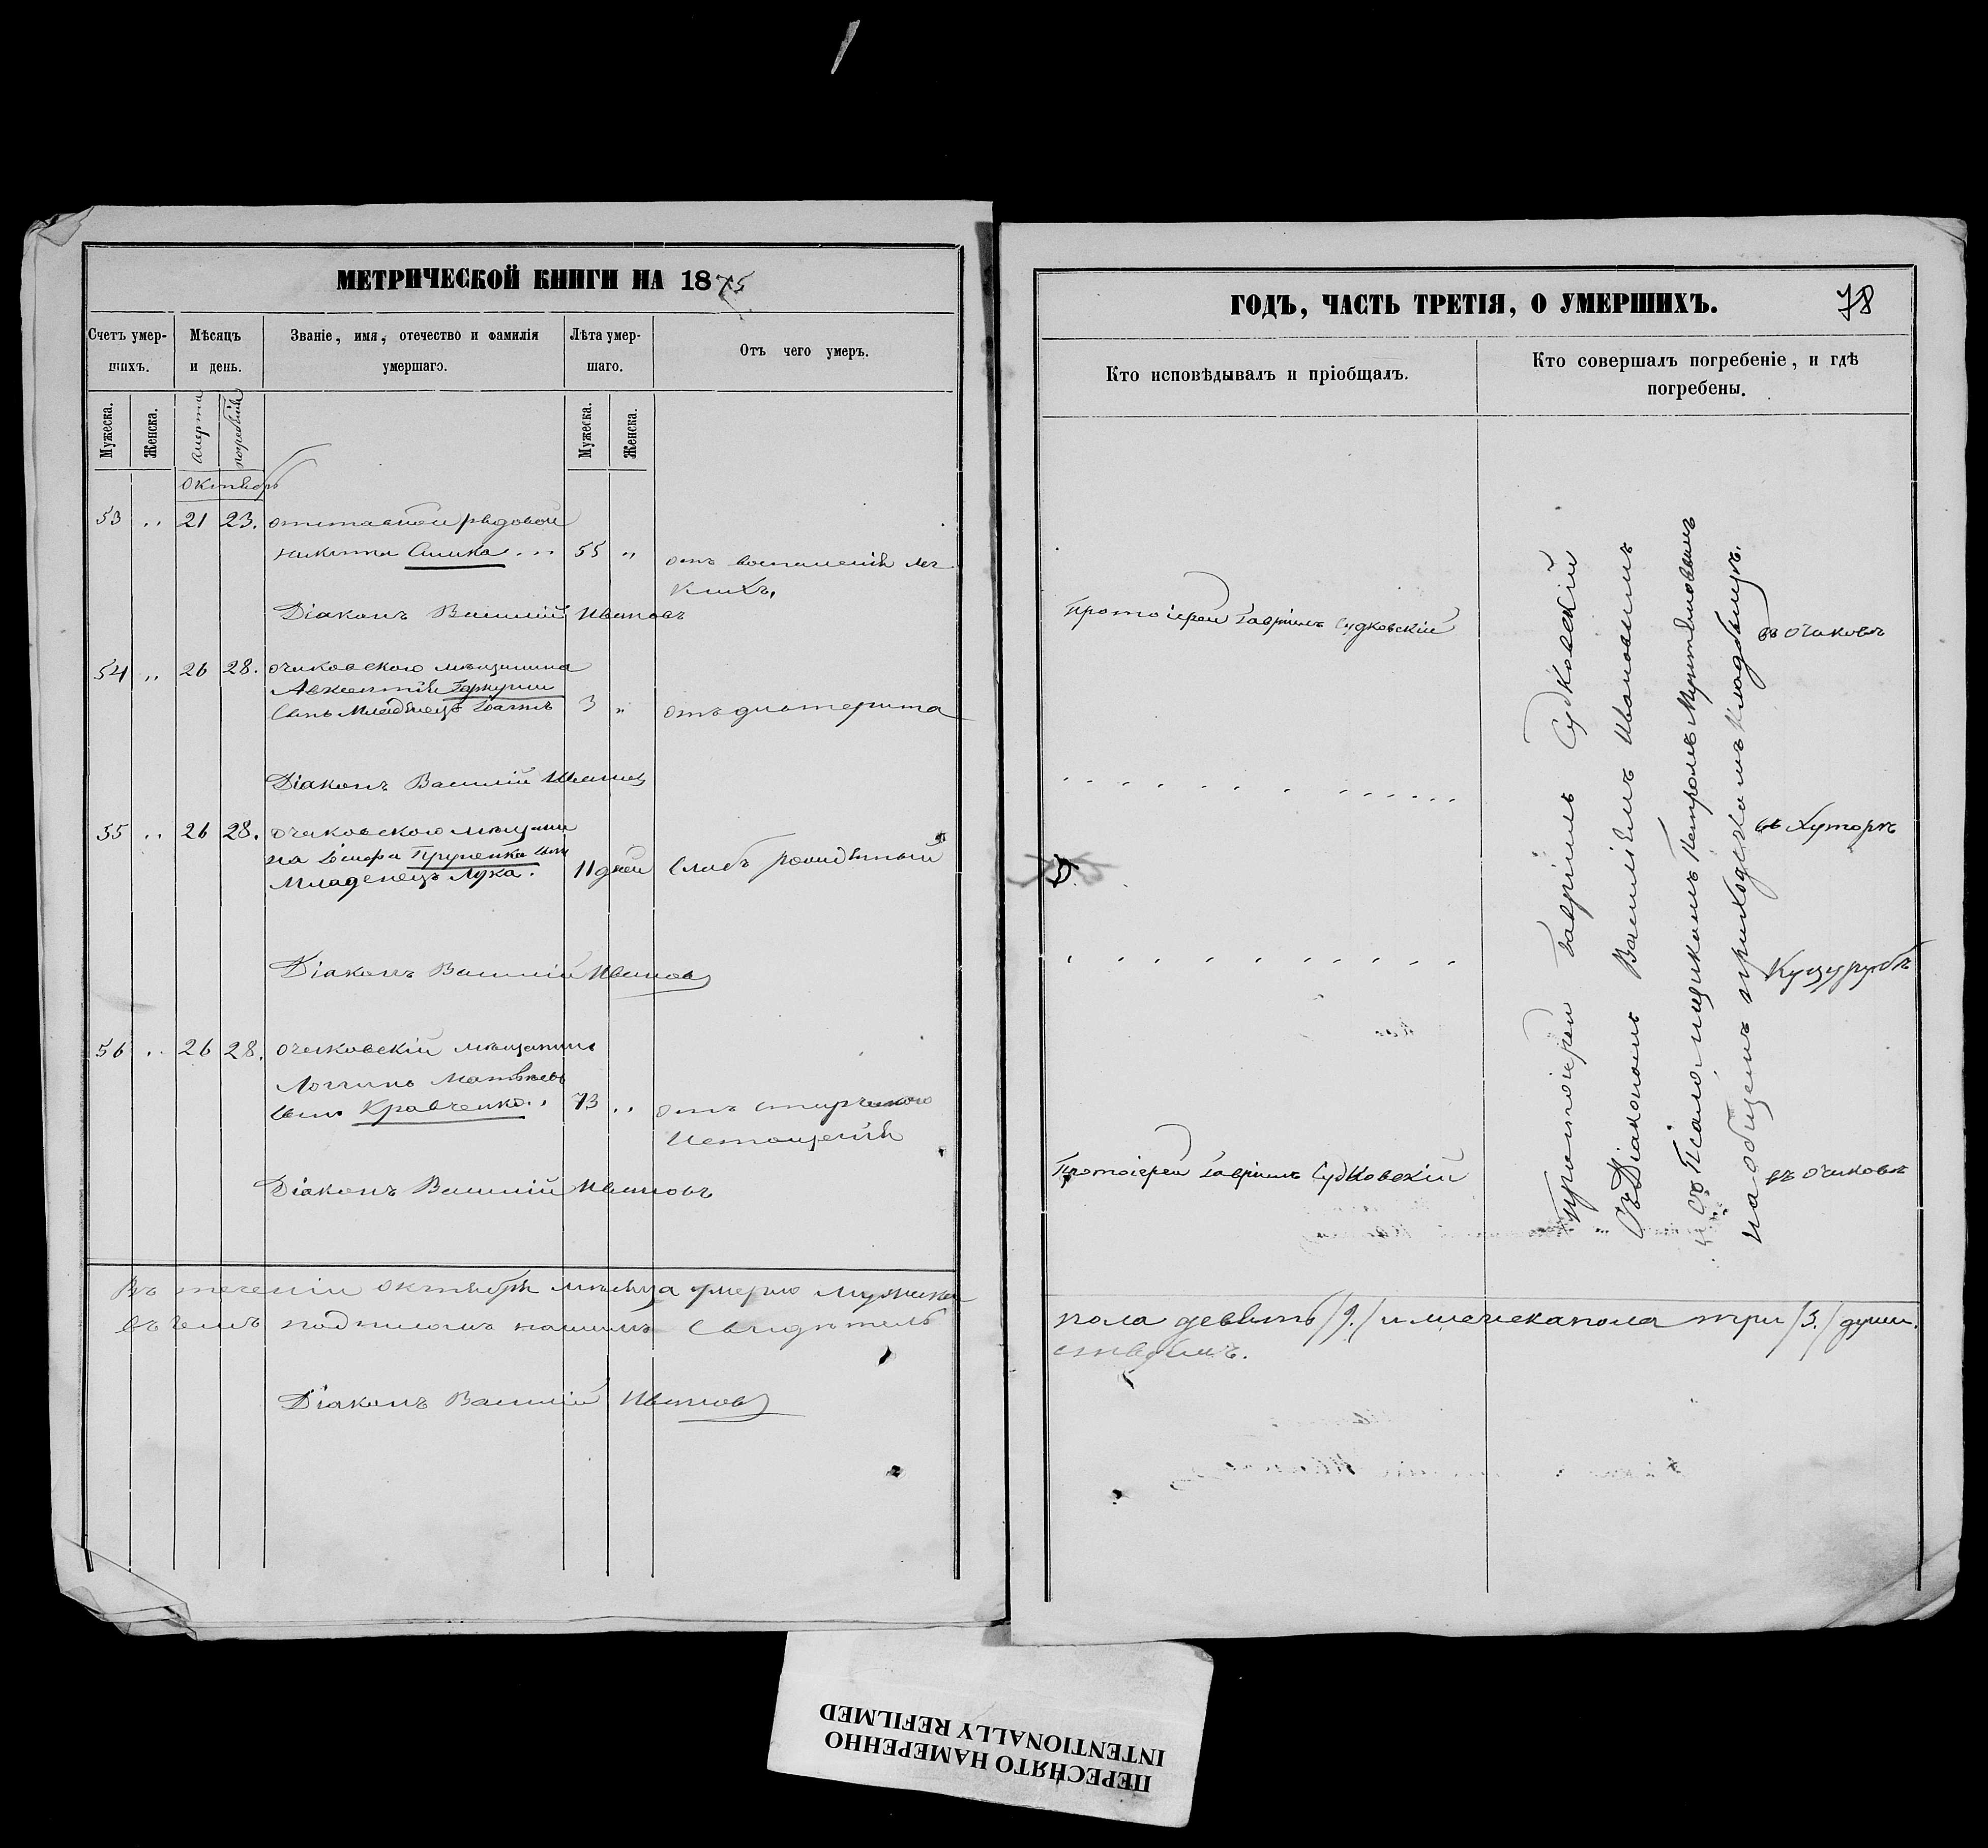 МЕТРИЧЕСКОЙ КНИГИ НА 1875
Счетъ умер-
шихъ.
Мѣсяцъ
и день.
Званіе, имя, отечество и фамилія
умершаго.
Лѣта умер-
шаго.
Отъ чего умеръ.
Мужеска.
Женска.
смерти
погребенія
Мужеска.
Женска.
Октябрь
53 „ 21 23. отставной рядовой
Никита 55 „ отъ воспаленія лег
кихъ.
Діаконъ Василій Ивановъ
54 „ 26 28. очаковскаго мѣщанина
Авксентія
сынъ Младенецъ Іоаннъ 3 „ отъ дифтерита
Діаконъ Василій Ивановъ
55 „ 26 28. очаковскаго мѣщани
на Іосифа сынъ
Младенецъ Лука. 11 дней слабо рожденный
Діаконъ Василій Ивановъ
56 „ 26 28. очаковскій мѣщанинъ
Логгинъ Матвѣевъ
сынъ Кравченко 73 „ отъ старческаго
истощенія
Діаконъ Василій Ивановъ
Въ теченіи октября мѣсяца умерло мужеска
въ чемъ подписомъ нашимъ свидѣтель
Діаконъ Василій Ивановъ
ГОДЪ, ЧАСТЬ ТРЕТІЯ, О УМЕРШИХЪ.
78
Кто исповѣдывалъ и пріобщалъ.
Кто совершалъ погребеніе, и гдѣ
погребены.
Протоіерей Гавріилъ Судковскій
Протоіерей Гавріилъ Судковскій
Протоіерей Гавріилъ Судковскій
Съ Діакономъ Василіемъ Ивановымъ
съ Псаломщикомъ Петромъ
на общемъ приходскомъ кладбищѣ.
въ Очаковѣ
въ Хуторѣ
Куцурубѣ
въ Очаковѣ
пола девять /9./ и женска пола три /3./ души.
ствуемъ.
ПЕРЕСНЯТО НАМЕРЕННО
INTENTIONALLY REFILMED